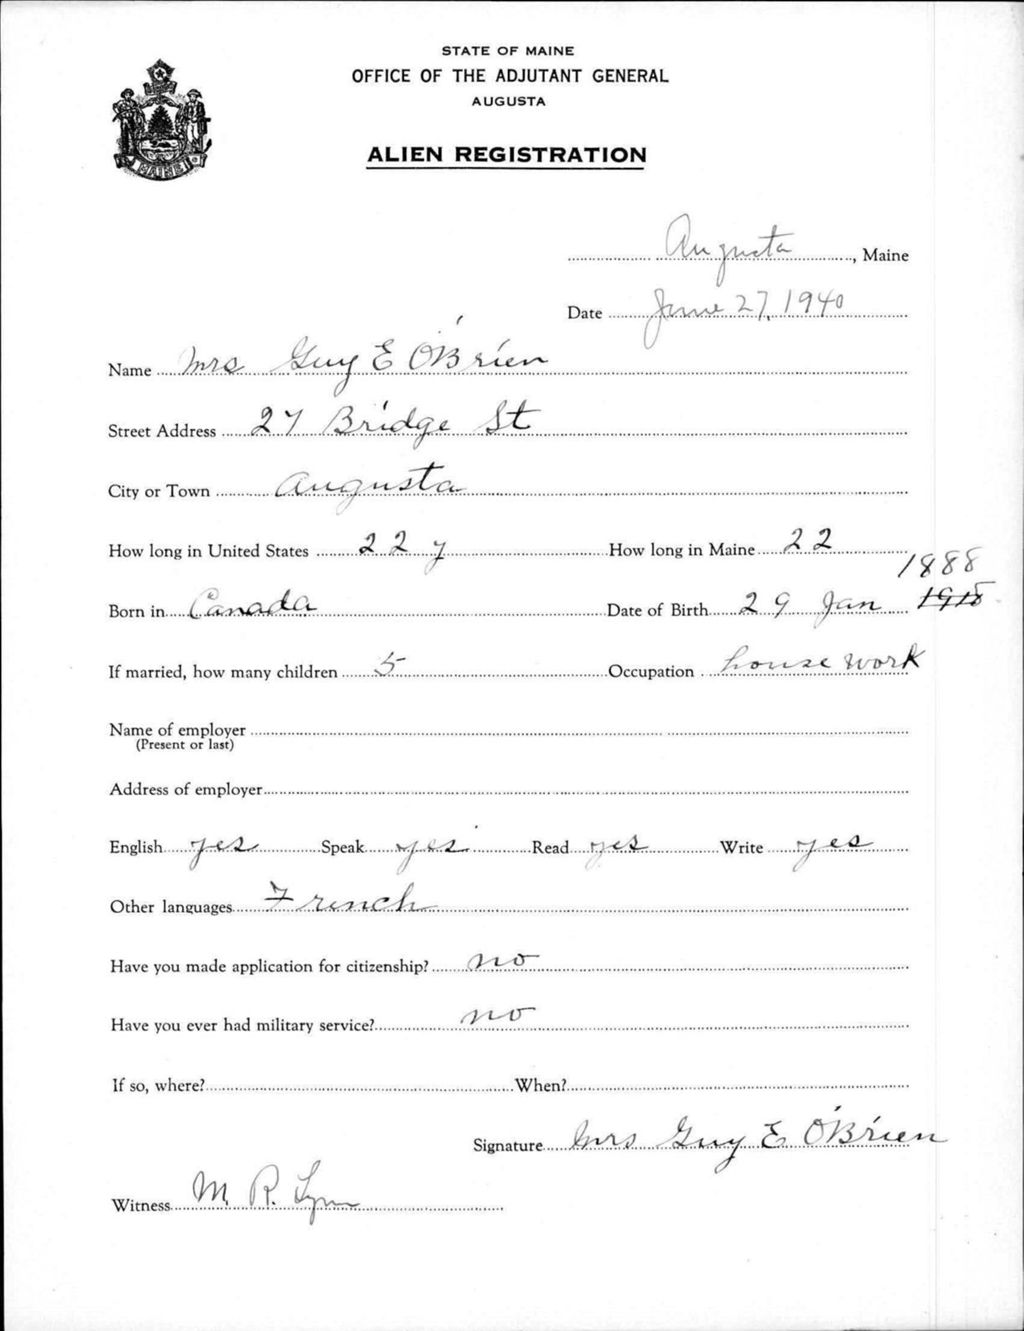 STATE OF MAINE
OFFICE OF THE ADJUTANT GENERAL
AUGUSTA
ALIEN REGISTRATION
MAINE
Augusta, Maine
Date June 27, 1940
Name Mrs Guy E O'Brien
Street Address 27 Bridge St
City or Town Augusta
How long in United States 22 y How long in Maine 22
1888
Born in Canada Date of Birth 29 Jan 1918
If married, how many children 5 Occupation house work
Name of employer
(Present or last)
Address of employer
English yes Speak yes Read yes Write yes
Other languages French
Have you made application for citizenship? no
Have you ever had military service? no
If so, where? When?
Signature Mrs Guy E O'Brien
Witness M. R. Lynn